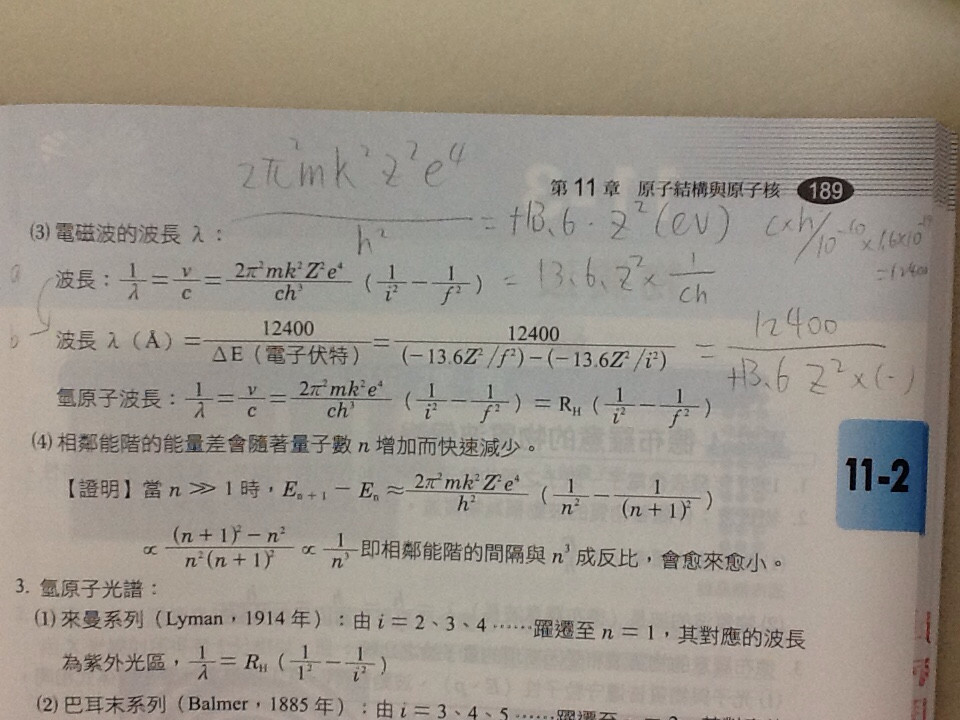 2π²mk²Z²e⁴ / h² = +13.6 · Z² (eV)
第 11 章 原子結構與原子核 189
c×h / 10⁻¹⁰ × 1.6×10⁻¹⁹
= 12400
(3) 電磁波的波長 λ：
a 波長：1/λ = ν/c = 2π²mk²Z²e⁴/ch³ (1/i² − 1/f²) = 13.6 Z² × 1/ch
b 波長 λ (Å) = 12400/ΔE (電子伏特) = 12400/(−13.6Z²/f²)−(−13.6Z²/i²) = 12400/+13.6 Z²×(-)
氫原子波長：1/λ = ν/c = 2π²mk²e⁴/ch³ (1/i² − 1/f²) = R_H (1/i² − 1/f²)
(4) 相鄰能階的能量差會隨著量子數 n 增加而快速減少。
11-2
【證明】當 n ≫ 1 時，Eₙ₊₁ − Eₙ ≈ 2π²mk²Z²e⁴/h² (1/n² − 1/(n+1)²)
∝ (n+1)² − n² / n²(n+1)² ∝ 1/n³ 即相鄰能階的間隔與 n³ 成反比，會愈來愈小。
3. 氫原子光譜：
(1) 來曼系列 (Lyman，1914 年)：由 i = 2、3、4 ……躍遷至 n = 1，其對應的波長
為紫外光區，1/λ = R_H (1/1² − 1/i²)
(2) 巴耳末系列 (Balmer，1885 年)：由 i = 3、4、5 ……躍遷至